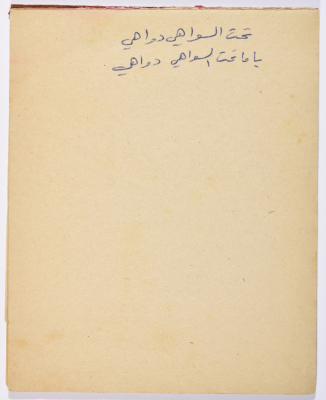 تحت السواهي دواهي
ياما تحت السواهي دواهي